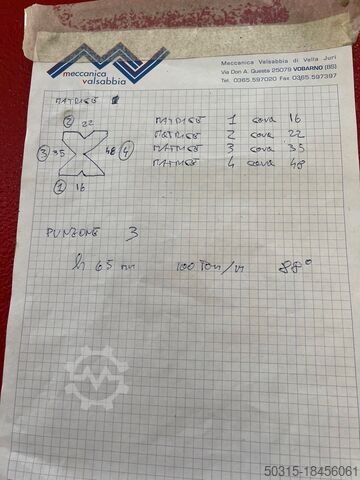 Meccanica Valsabbia di Vella Juri
Via Don A. Questa 25079 VOBARNO (BS)
Tel. 0365.597020 Fax 0365.597397
meccanica
valsabbia
MATRICE 1
2 22
MATRICE 1 cava 16
MATRICE 2 cava 22
3 35 48 4
MATRICE 3 cava 35
MATRICE 4 cava 48
1 16
PUNZONE 3
h 65 mm 100 Ton/m 88°
50315-18456061